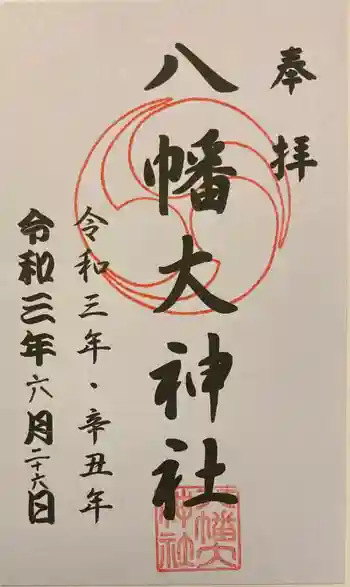 奉拝
八幡大神社
令和三年・辛丑年
令和三年六月二十六日
八幡大神社